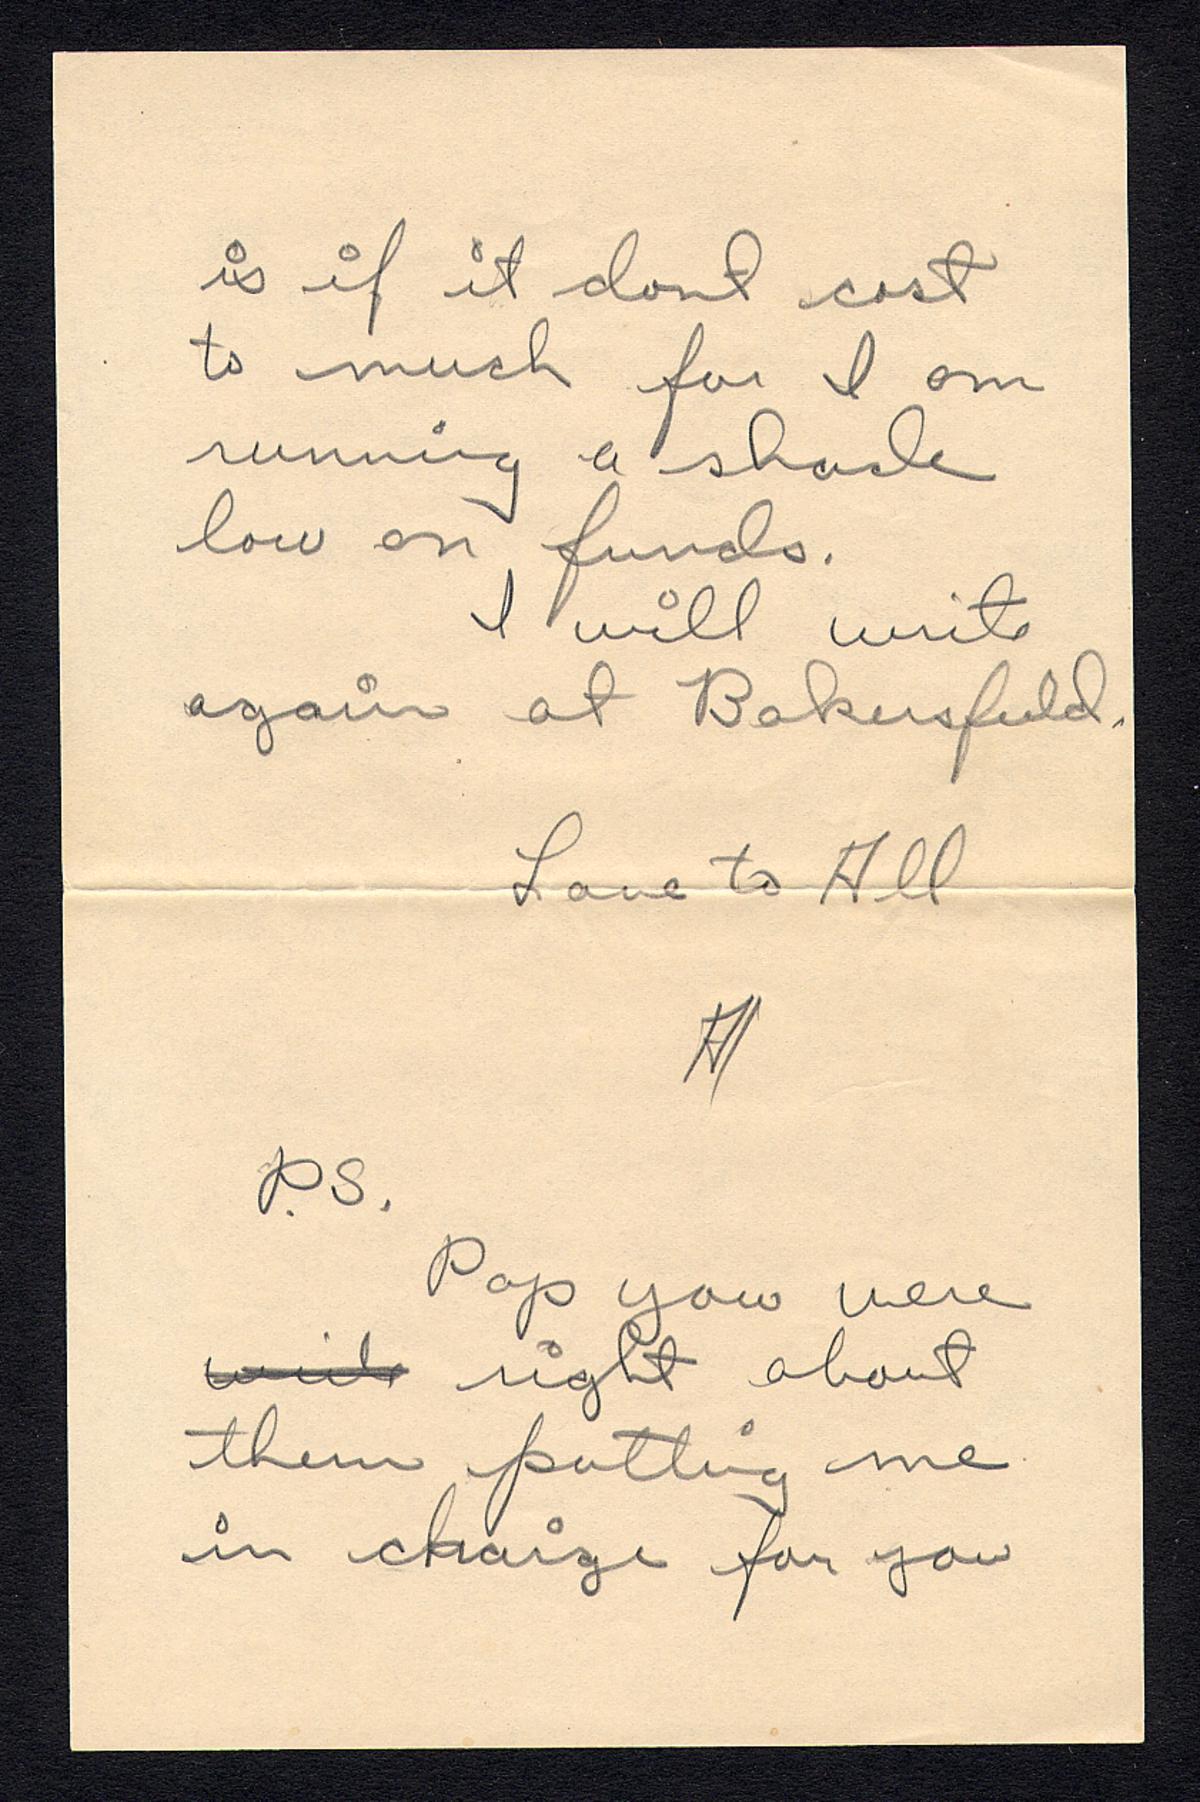 is if it dont cost
to much for I am
running a shade
low on funds.
I will write
again at Bakersfield.
Love to All
Al
P.S.
Pop you were
right about
them putting me
in charge for you